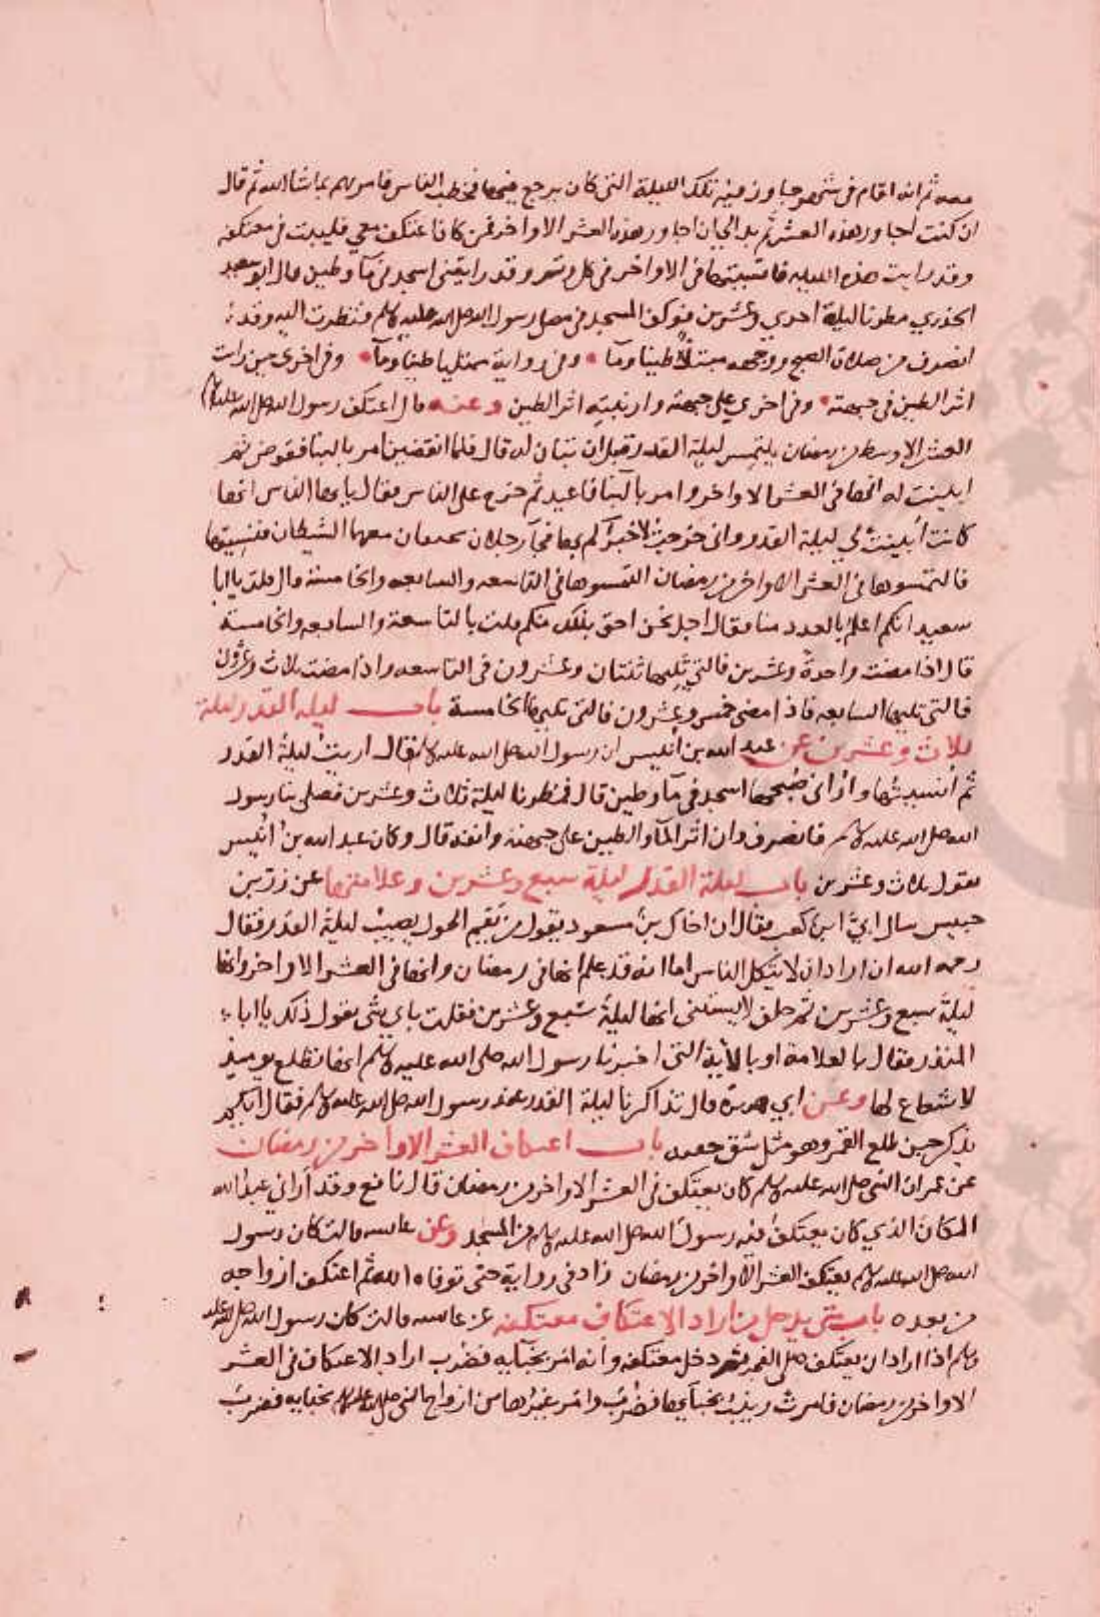 معه ثم انه اقام فى شهر جاور فيه تلك الليلة التى كان يرجع فيها فخطب الناس فامرهم بما شا الله ثم قال
ان كنت اجاور هذه العشر ثم بدا لى ان اجاور هذه العشر الاواخر فمن كان اعتكف معي فليبت فى معتكفه
وقد رايت هذه الليله فانسيتها فى الاواخر فى كل وتر وقد رايتنى اسجد فى مآ وطين قال ابو سعيد
الخدري مطرنا ليلة احدى وعشرين فوكف المسجد فى مصلى رسول الله صلى الله عليه وسلم فنظرت اليه وقد
انصرف من صلاة الصبح ووجهه مبتلا طينا ومآ وفى رواية ممتليا طينا ومآ وفى اخرى حين رات
اثر الطين فى جبهته وفى اخري على جبهته وارنبته اثر الطين وعنه قال اعتكف رسول الله صلى الله عليه
العشر الاوسط من رمضان يلتمس ليلة القدر قبل ان تبان له قال فلما انقضين امر بالبنا فقوض ثم
ابينت له انها فى العشر الاواخر وامر بالبنا فاعيد ثم خرج على الناس فقال يا ايها الناس انها
كانت أبينت لي ليلة القدر وانى خرجت لاخبركم بها فجآ رجلان يحتقان معهما الشيطان فنسيتها
فالتمسوها فى العشر الاواخر من رمضان التمسوها فى التاسعه والسابعه والخامسة قال قلت يا ابا
سعيد انكم اعلم بالعدد منا فقال اجل نحن احق بذلك منكم قلت بالتاسعة والسابعه والخامسة
قال اذا مضت واحدة وعشرين فالتي تليها ثنتان وعشرون فى التاسعه واذا مضت ثلاث وعشرون
فالتى تليها السابعه فاذا مضى خمس وعشرون فالتى تليها الخامسة باب ليله القدر ليلة
ثلاث وعشرين عن عبد الله بن أنيس ان رسول الله صلى الله عليه وسلم قال اريت ليلة القدر
ثم أنسيتها واراني صبحها اسجد فى مآ وطين قال فمطرنا ليلة ثلاث وعشرين فصلى بنا رسول
الله صلى الله عليه وسلم فانصرف وان اثر المآ والطين على جبهته وانفه قال وكان عبد الله بن انيس
يقول ثلاث وعشرين باب ليلة القدر ليلة سبع وعشرين وعلامتها عن زر بن
حبيش سال ابيّ ابن كعب فقال ان اخاك بن مسعود يقول من يقم الحول يصيب ليلة القدر فقال
رحمه الله ان اراد ان لا يتكل الناس اما انه قد علم انها فى رمضان وانها فى العشر الاواخر وانها
ليلة سبع وعشرين ثم حلف لا يستثنى انها ليلة سبع وعشرين فقلت باي شى تقول ذلك يا ابا
المنذر فقال بالعلامة او بالاية التى اخبرنا رسول الله صلى الله عليه وسلم انها تطلع يوميذ
لا شعاع لها وعن ابي هريرة قال تذاكرنا ليلة القدر عند رسول الله صلى الله عليه وسلم فقال ايكم
يذكر حين طلع القمر وهو مثل شق جفنه باب اعتكاف العشر الاواخر من رمضان
عن عمر ان النبى صلى الله عليه وسلم كان يعتكف فى العشر الاواخر من رمضان قال نافع وقد اراني عبد الله
المكان الذي كان يعتكف فيه رسول الله صلى الله عليه وسلم من المسجد وعن عائشه قالت كان رسول
الله صلى الله عليه وسلم يعتكف العشر الاواخر من رمضان زاد فى رواية حتى توفاه الله ثم اعتكف ازواجه
من بعده باب متى يدخل من اراد الاعتكاف معتكفه عن عائشه قالت كان رسول الله صلى الله عليه
وسلم اذا اراد ان يعتكف صلى الفجر ثم دخل معتكفه وانه امر بخبآيه فضرب اراد الاعتكاف فى العشر
الاواخر من رمضان فامرت زينب بخبآيها فضرب وامر غيرها من ازواج النبى صلى الله عليه وسلم بخبايه فضرب